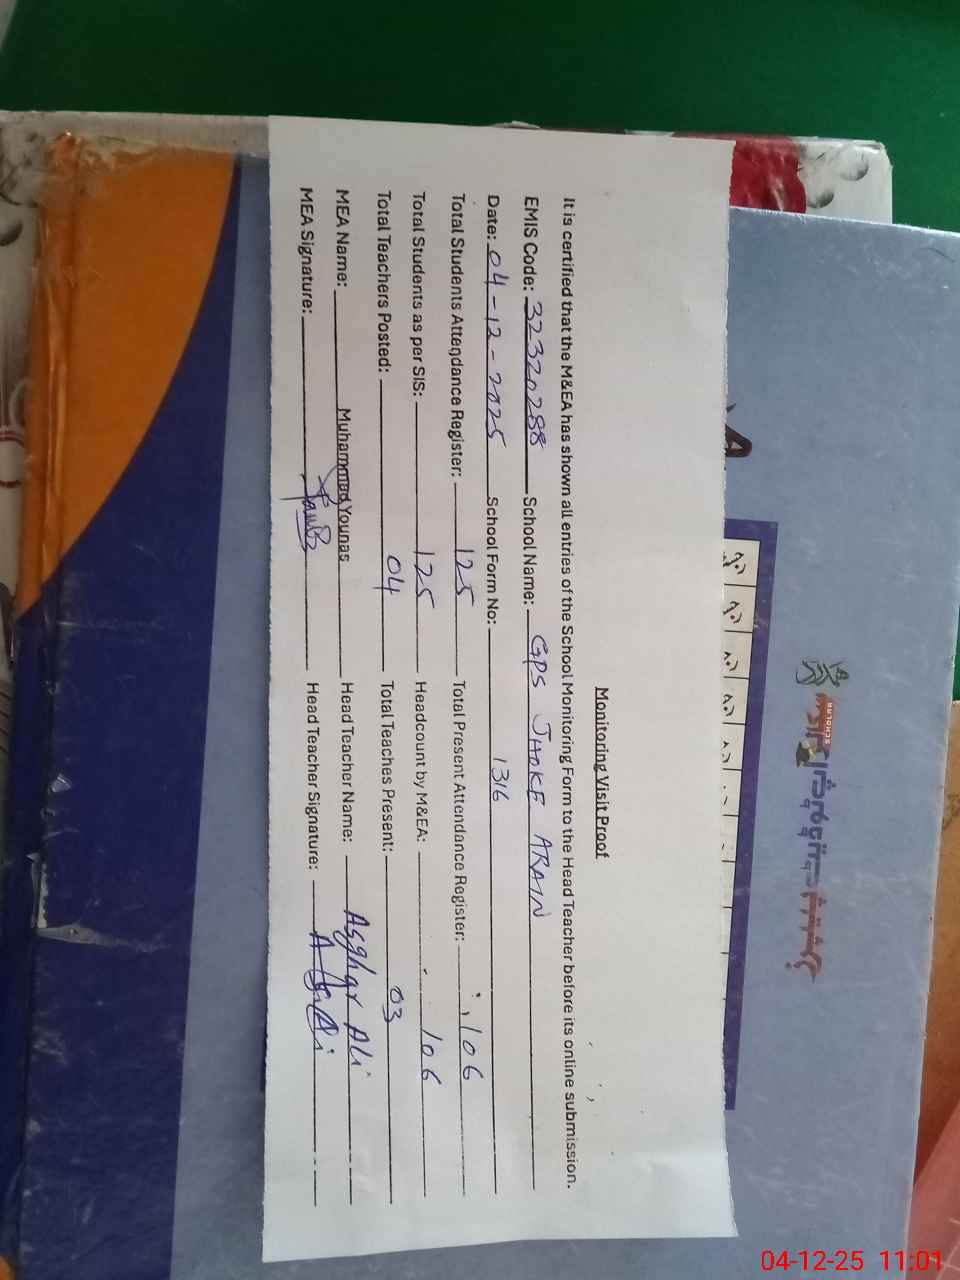 Monitoring Visit Proof
It is certified that the M&EA has shown all entries of the School Monitoring Form to the Head Teacher before its online submission.
EMIS Code: 32320288 School Name: GPS JHOKE ARAIN
Date: 04-12-2025 School Form No: 1316
Total Students Attendance Register: 125 Total Present Attendance Register: 106
Total Students as per SIS: 125 Headcount by M&EA: 106
Total Teachers Posted: 04 Total Teaches Present: 03
MEA Name: Muhammad Younas Head Teacher Name: Asghar Ali
MEA Signature: Head Teacher Signature:
SCHOLAR
04-12-25 11:01